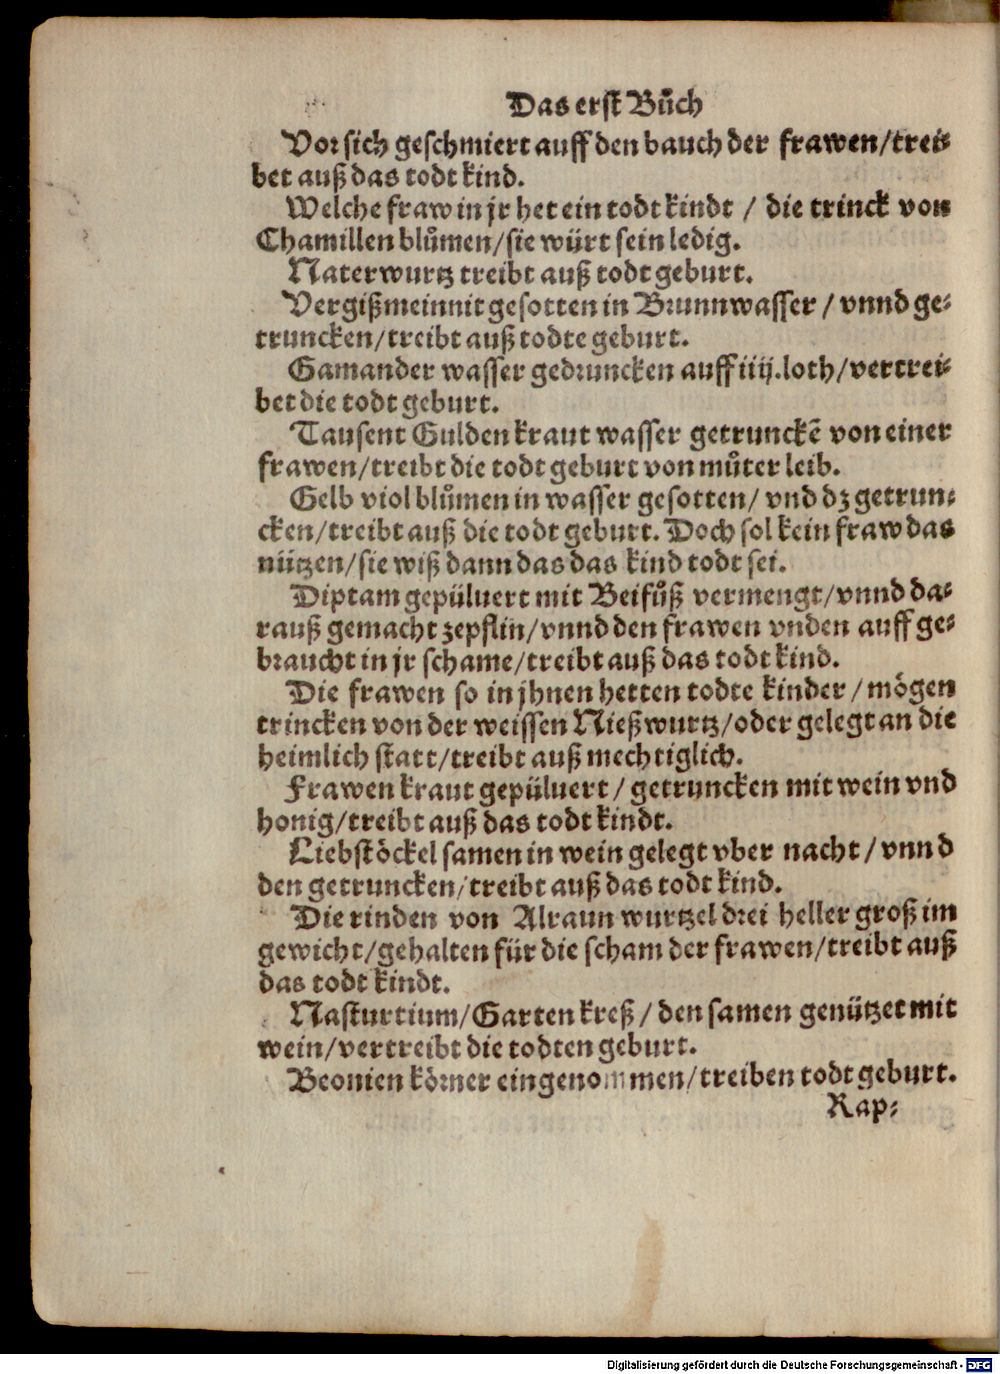 Das erst Bůch
Vor sich geschmiert auff den bauch der frawen/trei⸗
bet auß das todt kind.
Welche fraw in jr het ein todt kindt / die trinck von
Chamillen blůmen/sie würt sein ledig.
Naterwurtz treibt auß todt geburt.
Vergißmeinnit gesotten in Brunnwasser / vnnd ge⸗
truncken/treibt auß todte geburt.
Gamander wasser gedruncken auff iiij.loth/vertrei⸗
bet die todt geburt.
Tausent Gulden kraut wasser getrunckē von einer
frawen/treibt die todt geburt von můter leib.
Gelb viol blůmen in wasser gesotten/ vnd dz getrun⸗
cken/treibt auß die todt geburt. Doch sol kein fraw das
nützen/sie wiß dann das das kind todt sei.
Diptam gepüluert mit Beifůß vermengt/vnnd da⸗
rauß gemacht zepflin/vnnd den frawen vnden auff ge⸗
braucht in jr schame/treibt auß das todt kind.
Die frawen so in jhnen hetten todte kinder / mögen
trincken von der weissen Nießwurtz/oder gelegt an die
heimlich statt/treibt auß mechtiglich.
Frawen kraut gepüluert / getruncken mit wein vnd
honig/treibt auß das todt kindt.
Liebstöckel samen in wein gelegt vber nacht / vnnd
den getruncken/treibt auß das todt kind.
Die rinden von Alraun wurtzel drei heller groß im
gewicht/gehalten für die scham der frawen/treibt auß
das todt kindt.
Nasturtium/Garten kreß / den samen genützet mit
wein/vertreibt die todten geburt.
Beonien körner eingenommen/treiben todt geburt.
Rap⸗
Digitalisierung gefördert durch die Deutsche Forschungsgemeinschaft - DFG